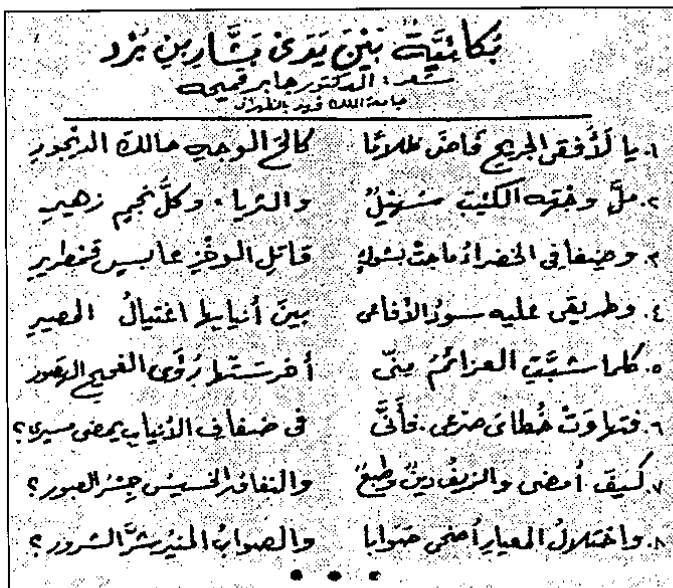 بُكائيَّةٌ بَيْنَ يَدَىْ بَشَّارِ بنِ بُرْد
شعر: الدكتور جابر قميحه
جامعة الملك فهد بالظهران
١. يا لَأُفقى الجريحِ فاضَ ظلامًا كالحَ الوجهِ حالكَ الديجورِ
٢. ملَّ وجْهَه الكئيبَ سُهَيْلٌ والثريا، وكلُّ نجيمٍ زهيرِ
٣. وضِفافى الخضراءُ ماجتْ بشوكٍ قاتلِ الوخْزِ عابسٍ قمطريرِ
٤. وطريقى عليه سودُ الأفاعى بينَ أنيابها اغتيالُ المصيرِ
٥. كلما شبَّتِ العزائمُ منِّى أخرستْها رُؤى الفحيحِ الهصور
٦. فتهاوَتْ خُطاىَ صرعى. فأنَّى فى ضفافِ الأنيابِ يمضى مسيرى؟
٧. كيفَ أمضى والزيفُ دينٌ وطبعٌ والنفاقُ الخسيسُ جِسْرُ العبور؟
٨. واختلالُ المعيارِ أضحى صوابا والصوابُ المنيرُ شرَّ الشرور؟